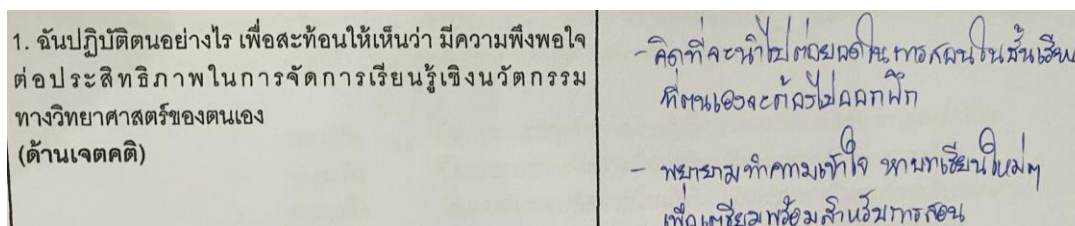 1. ฉันปฏิบัติตนอย่างไร เพื่อสะท้อนให้เห็นว่า มีความพึงพอใจ
ต่อประสิทธิภาพในการจัดการเรียนรู้เชิงนวัตกรรม
ทางวิทยาศาสตร์ของตนเอง
(ด้านเจตคติ)
- คิดที่จะนำไปต่อยอดในการสอนในชั้นเรียน
ที่ตนเองจะต้องไปออกฝึก
- พยายามทำความเข้าใจ หาบทเรียนใหม่ๆ
เพื่อเตรียมพร้อมสำหรับการสอน